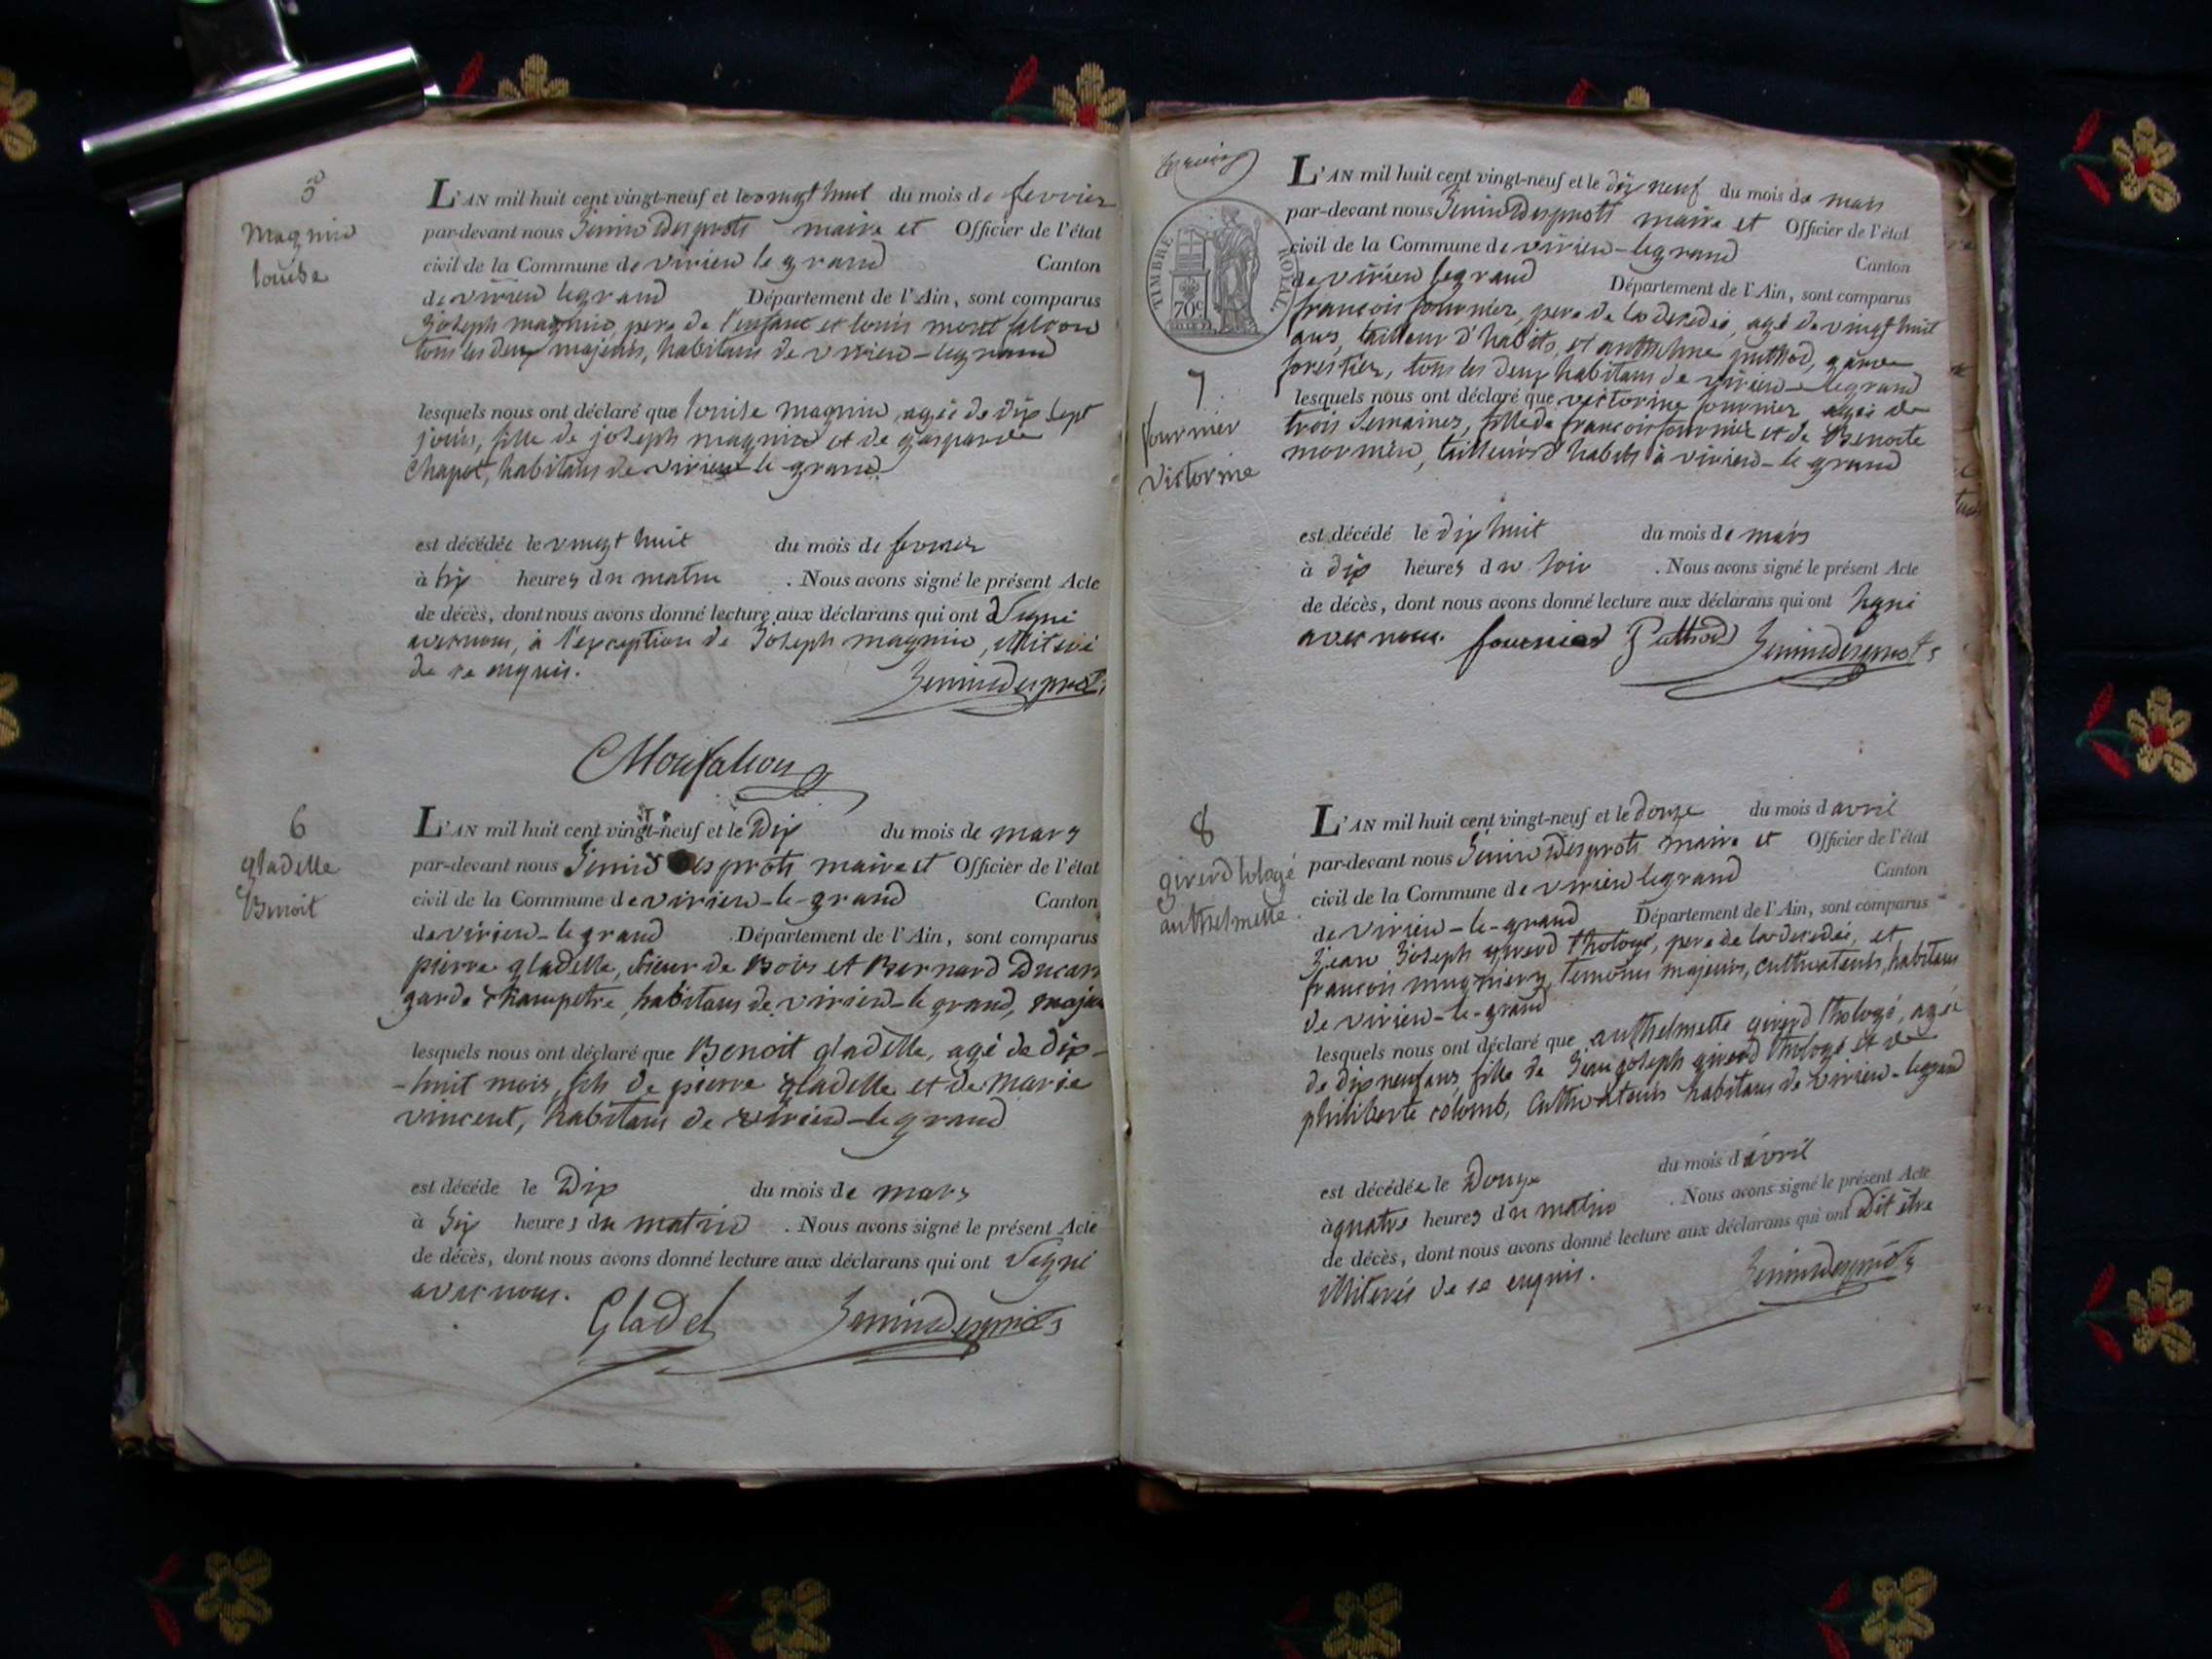 5
magnin
louise
L'AN mil huit cent vingt-neuf et le vingt huit du mois de fevrier
par-devant nous Jenin Desprots maire et Officier de l'état
civil de la Commune de virieu le grand Canton
de virieu legrand Département de l'Ain, sont comparus
Joseph magnin, pere de l'enfant et louis montfalcon
tous les deux majeurs, habitans de virieu-legrand
lesquels nous ont déclaré que louise magnin, agée de dix sept
jours, fille de joseph magnin et de gasparde
chapot, habitans de virieu le grand.
est décédée le vingt huit du mois de fevrier
à six heures du matin . Nous avons signé le présent Acte
de décès, dont nous avons donné lecture aux déclarans qui ont signé
avec nous, à l'exception de Joseph magnin, illiteré
de ce enquis.
Jenin Desprots
Monfalcon
6
gladelle
Benoit
L'AN mil huit cent vingt-neuf et le Dix du mois de mars
par-devant nous Jenin Desprots maire et Officier de l'état
civil de la Commune de virieu-le-grand Canton
de virieu-le grand Département de l'Ain, sont comparus
pierre gladelle, sieur de Bois et Bernard Ducar
garde champetre, habitans de virieu-le grand, majeu
lesquels nous ont déclaré que Benoit gladelle, agé de dix-
-huit mois, fils de pierre gladelle et de marie
vincent, habitans de virieu-le grand
est décédé le Dix du mois de mars
à six heures du matin . Nous avons signé le présent Acte
de décès, dont nous avons donné lecture aux déclarans qui ont signé
avec nous.
Gladel Jenin Desprots
TIMBRE ROYAL
70c
7
fournier
victorine
L'AN mil huit cent vingt-neuf et le dix neuf du mois de mars
par-devant nous Jenin Desprots maire et Officier de l'état
civil de la Commune de virieu-legrand Canton
de virieu legrand Département de l'Ain, sont comparus
francois fournier, pere de la decedée, agé de vingt huit
ans, tailleur d'habits, et anthelme puthod, garde
forestier, tous les deux habitans de virieu-legrand
lesquels nous ont déclaré que victorine fournier, agée de
trois semaines, fille de francois fournier et de Benoite
mornieu, tailleurs d'habits à virieu-le grand
est décédé le dix huit du mois de mars
à dix heures du soir . Nous avons signé le présent Acte
de décès, dont nous avons donné lecture aux déclarans qui ont signé
avec nous. fournier Puthod Jenin Desprots
8
girerd thologé
anthelmette
L'AN mil huit cent vingt-neuf et le douze du mois d'avril
par-devant nous Jenin Desprots maire et Officier de l'état
civil de la Commune de virieu legrand Canton
de virieu-le-grand Département de l'Ain, sont comparus
Jean Joseph girerd thologé, pere de la decedée, et
francois mugniery, temoins majeurs, cultivateurs, habitans
de virieu-le-grand
lesquels nous ont déclaré que anthelmette girerd thologé, agée
de dix neuf ans, fille de Jean joseph girerd thologé et de
philiberte colomb, cultivateurs habitans de virieu-legrand
est décédée le Douze du mois d'avril
à quatre heures du matin . Nous avons signé le présent Acte
de décès, dont nous avons donné lecture aux déclarans qui ont Dit être
illiterés de ce enquis. Jenin Desprots